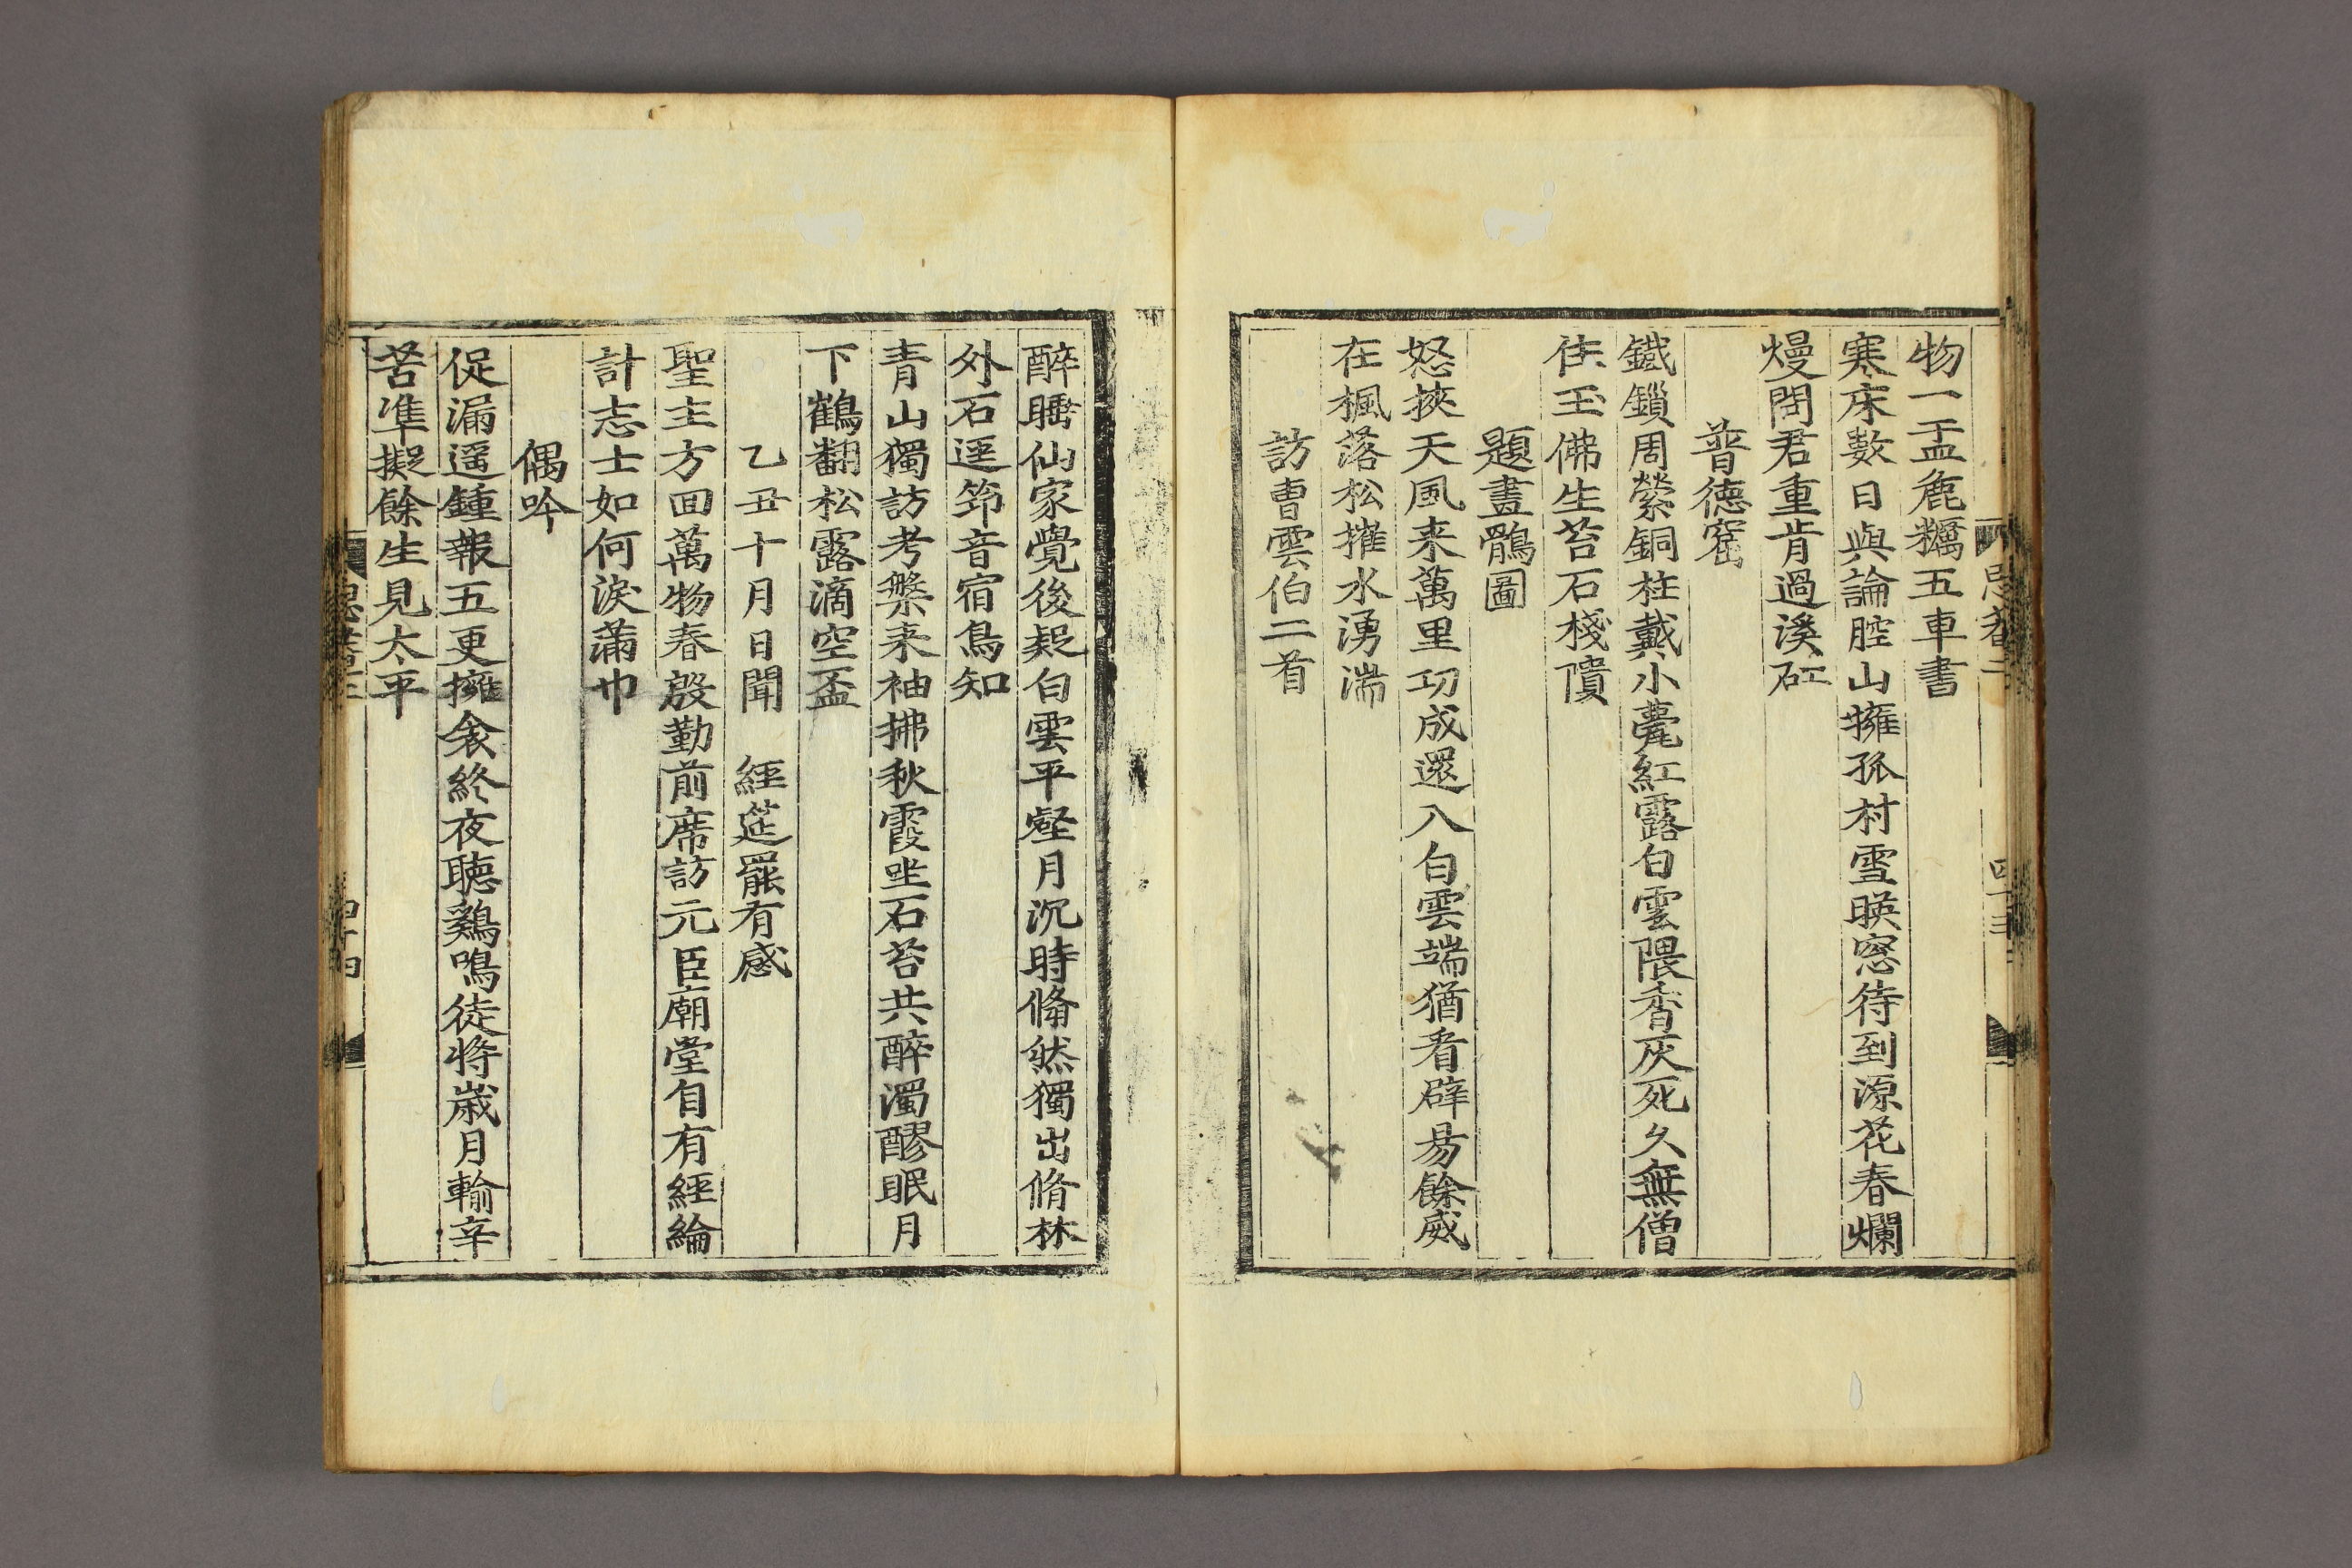 物一盂麁糲五車書
寒床數日與論腔山擁孤村雪暎窓待到源花春爛
熳問君重肯過溪矼
普德窟
鐵鎖周縈銅柱戴小甍紅露白雲隈香灰死久無僧
住玉佛生苔石棧隤
題畫鶻圖
怒挾天風来萬里功成還入白雲端猶看辟易餘威
在楓落松摧水湧湍
訪曹雲伯二首
醉睡仙家覺後疑白雲平壑月沉時翛然獨出脩林
外石逕筇音宿鳥知
青山獨訪考槃来袖拂秋霞坐石苔共醉濁醪眠月
下鶴翻松露滴空盃
乙丑十月日聞 經筵罷有感
聖主方回萬物春殷勤前席訪元臣廟堂自有經綸
計志士如何淚滿巾
偶吟
促漏遥鍾報五更擁衾終夜聴鷄鳴徒將歲月輸辛
苦準擬餘生見太平
四十四